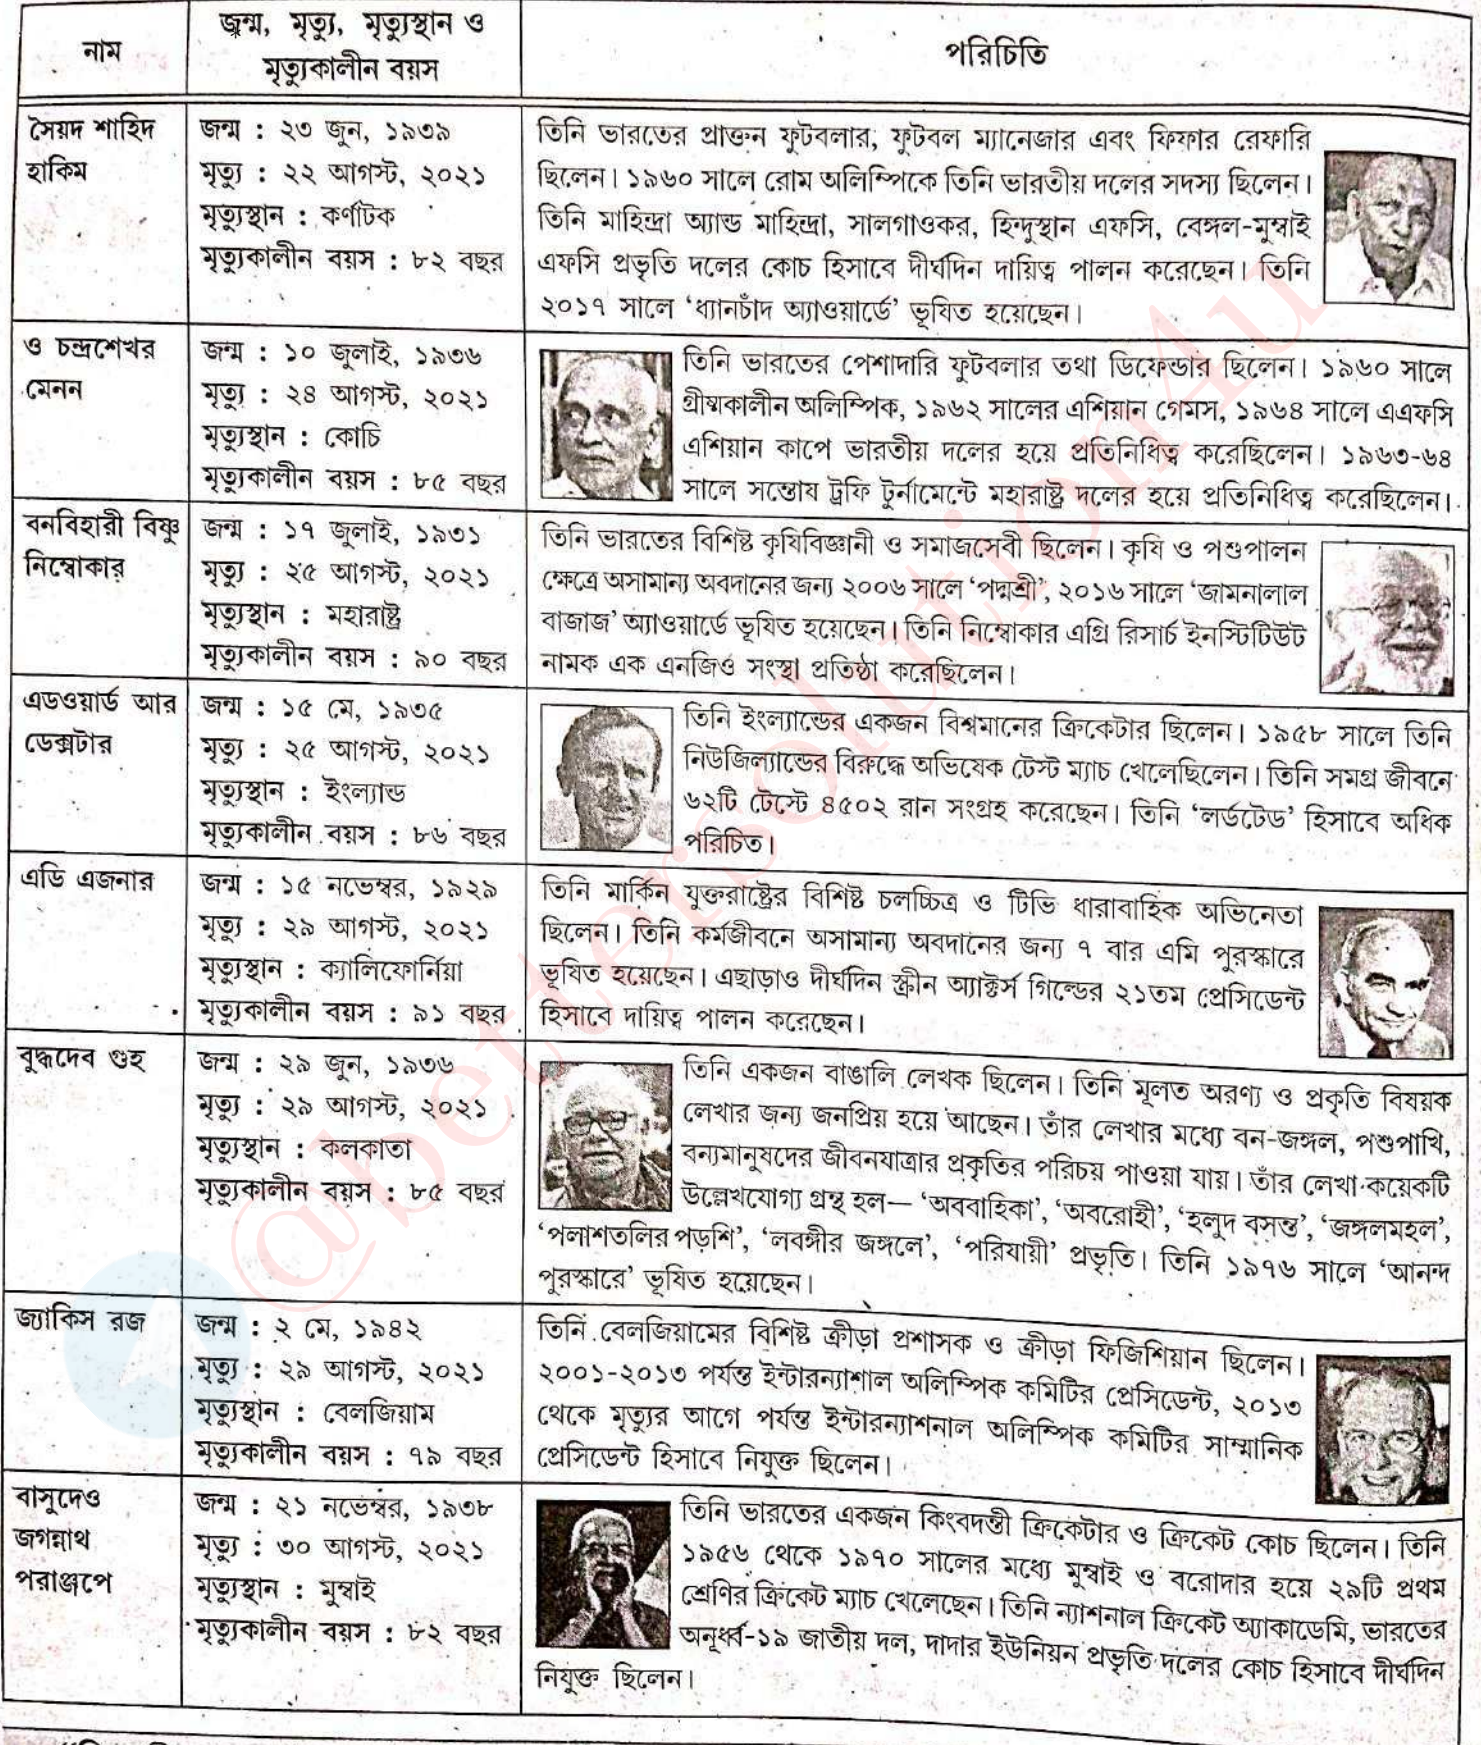 নাম
জন্ম, মৃত্যু, মৃত্যুস্থান ও
মৃত্যুকালীন বয়স
পরিচিতি
সৈয়দ শাহিদ
হাকিম
জন্ম : ২৩ জুন, ১৯৩৯
মৃত্যু : ২২ আগস্ট, ২০২১
মৃত্যুস্থান : কর্ণাটক
মৃত্যুকালীন বয়স : ৮২ বছর
তিনি ভারতের প্রাক্তন ফুটবলার, ফুটবল ম্যানেজার এবং ফিফার রেফারি
ছিলেন। ১৯৬০ সালে রোম অলিম্পিকে তিনি ভারতীয় দলের সদস্য ছিলেন।
তিনি মাহিন্দ্রা অ্যান্ড মাহিন্দ্রা, সালগাওকর, হিন্দুস্থান এফসি, বেঙ্গল-মুম্বাই
এফসি প্রভৃতি দলের কোচ হিসাবে দীর্ঘদিন দায়িত্ব পালন করেছেন। তিনি
২০১৭ সালে ‘ধ্যানচাঁদ অ্যাওয়ার্ডে’ ভূষিত হয়েছেন।
ও চন্দ্রশেখর
মেনন
জন্ম : ১০ জুলাই, ১৯৩৬
মৃত্যু : ২৪ আগস্ট, ২০২১
মৃত্যুস্থান : কোচি
মৃত্যুকালীন বয়স : ৮৫ বছর
তিনি ভারতের পেশাদারি ফুটবলার তথা ডিফেন্ডার ছিলেন। ১৯৬০ সালে
গ্রীষ্মকালীন অলিম্পিক, ১৯৬২ সালের এশিয়ান গেমস, ১৯৬৪ সালে এএফসি
এশিয়ান কাপে ভারতীয় দলের হয়ে প্রতিনিধিত্ব করেছিলেন। ১৯৬৩-৬৪
সালে সন্তোষ ট্রফি টুর্নামেন্টে মহারাষ্ট্র দলের হয়ে প্রতিনিধিত্ব করেছিলেন।
বনবিহারী বিষ্ণু
নিম্বোকার
জন্ম : ১৭ জুলাই, ১৯৩১
মৃত্যু : ২৫ আগস্ট, ২০২১
মৃত্যুস্থান : মহারাষ্ট্র
মৃত্যুকালীন বয়স : ৯০ বছর
তিনি ভারতের বিশিষ্ট কৃষিবিজ্ঞানী ও সমাজসেবী ছিলেন। কৃষি ও পশুপালন
ক্ষেত্রে অসামান্য অবদানের জন্য ২০০৬ সালে ‘পদ্মশ্রী’, ২০১৬ সালে ‘জামনালাল
বাজাজ’ অ্যাওয়ার্ডে ভূষিত হয়েছেন। তিনি নিম্বোকার এগ্রি রিসার্চ ইনস্টিটিউট
নামক এক এনজিও সংস্থা প্রতিষ্ঠা করেছিলেন।
এডওয়ার্ড আর
ডেক্সটার
জন্ম : ১৫ মে, ১৯৩৫
মৃত্যু : ২৫ আগস্ট, ২০২১
মৃত্যুস্থান : ইংল্যান্ড
মৃত্যুকালীন বয়স : ৮৬ বছর
তিনি ইংল্যান্ডের একজন বিশ্বমানের ক্রিকেটার ছিলেন। ১৯৫৮ সালে তিনি
নিউজিল্যান্ডের বিরুদ্ধে অভিষেক টেস্ট ম্যাচ খেলেছিলেন। তিনি সমগ্র জীবনে
৬২টি টেস্টে ৪৫০২ রান সংগ্রহ করেছেন। তিনি ‘লর্ডটেড’ হিসাবে অধিক
পরিচিত।
এডি এজনার
জন্ম : ১৫ নভেম্বর, ১৯২৯
মৃত্যু : ২৯ আগস্ট, ২০২১
মৃত্যুস্থান : ক্যালিফোর্নিয়া
মৃত্যুকালীন বয়স : ৯১ বছর
তিনি মার্কিন যুক্তরাষ্ট্রের বিশিষ্ট চলচ্চিত্র ও টিভি ধারাবাহিক অভিনেতা
ছিলেন। তিনি কর্মজীবনে অসামান্য অবদানের জন্য ৭ বার এমি পুরস্কারে
ভূষিত হয়েছেন। এছাড়াও দীর্ঘদিন স্ক্রীন অ্যাক্টর্স গিল্ডের ২১তম প্রেসিডেন্ট
হিসাবে দায়িত্ব পালন করেছেন।
বুদ্ধদেব গুহ
জন্ম : ২৯ জুন, ১৯৩৬
মৃত্যু : ২৯ আগস্ট, ২০২১
মৃত্যুস্থান : কলকাতা
মৃত্যুকালীন বয়স : ৮৫ বছর
তিনি একজন বাঙালি লেখক ছিলেন। তিনি মূলত অরণ্য ও প্রকৃতি বিষয়ক
লেখার জন্য জনপ্রিয় হয়ে আছেন। তাঁর লেখার মধ্যে বন-জঙ্গল, পশুপাখি,
বন্যমানুষদের জীবনযাত্রার প্রকৃতির পরিচয় পাওয়া যায়। তাঁর লেখা কয়েকটি
উল্লেখযোগ্য গ্রন্থ হল— ‘অববাহিকা’, ‘অবরোহী’, ‘হলুদ বসন্ত’, ‘জঙ্গলমহল’,
‘পলাশতলির পড়শি’, ‘লবঙ্গীর জঙ্গলে’, ‘পরিযায়ী’ প্রভৃতি। তিনি ১৯৭৬ সালে ‘আনন্দ
পুরস্কারে’ ভূষিত হয়েছেন।
জ্যাকিস রজ
জন্ম : ২ মে, ১৯৪২
মৃত্যু : ২৯ আগস্ট, ২০২১
মৃত্যুস্থান : বেলজিয়াম
মৃত্যুকালীন বয়স : ৭৯ বছর
তিনি বেলজিয়ামের বিশিষ্ট ক্রীড়া প্রশাসক ও ক্রীড়া ফিজিশিয়ান ছিলেন।
২০০১-২০১৩ পর্যন্ত ইন্টারন্যাশাল অলিম্পিক কমিটির প্রেসিডেন্ট, ২০১৩
থেকে মৃত্যুর আগে পর্যন্ত ইন্টারন্যাশনাল অলিম্পিক কমিটির সাম্মানিক
প্রেসিডেন্ট হিসাবে নিযুক্ত ছিলেন।
বাসুদেও
জগন্নাথ
পরাঞ্জপে
জন্ম : ২১ নভেম্বর, ১৯৩৮
মৃত্যু : ৩০ আগস্ট, ২০২১
মৃত্যুস্থান : মুম্বাই
মৃত্যুকালীন বয়স : ৮২ বছর
তিনি ভারতের একজন কিংবদন্তী ক্রিকেটার ও ক্রিকেট কোচ ছিলেন। তিনি
১৯৫৬ থেকে ১৯৭০ সালের মধ্যে মুম্বাই ও বরোদার হয়ে ২৯টি প্রথম
শ্রেণির ক্রিকেট ম্যাচ খেলেছেন। তিনি ন্যাশনাল ক্রিকেট অ্যাকাডেমি, ভারতের
অনূর্ধ্ব-১৯ জাতীয় দল, দাদার ইউনিয়ন প্রভৃতি দলের কোচ হিসাবে দীর্ঘদিন
নিযুক্ত ছিলেন।
@bettersolution4u